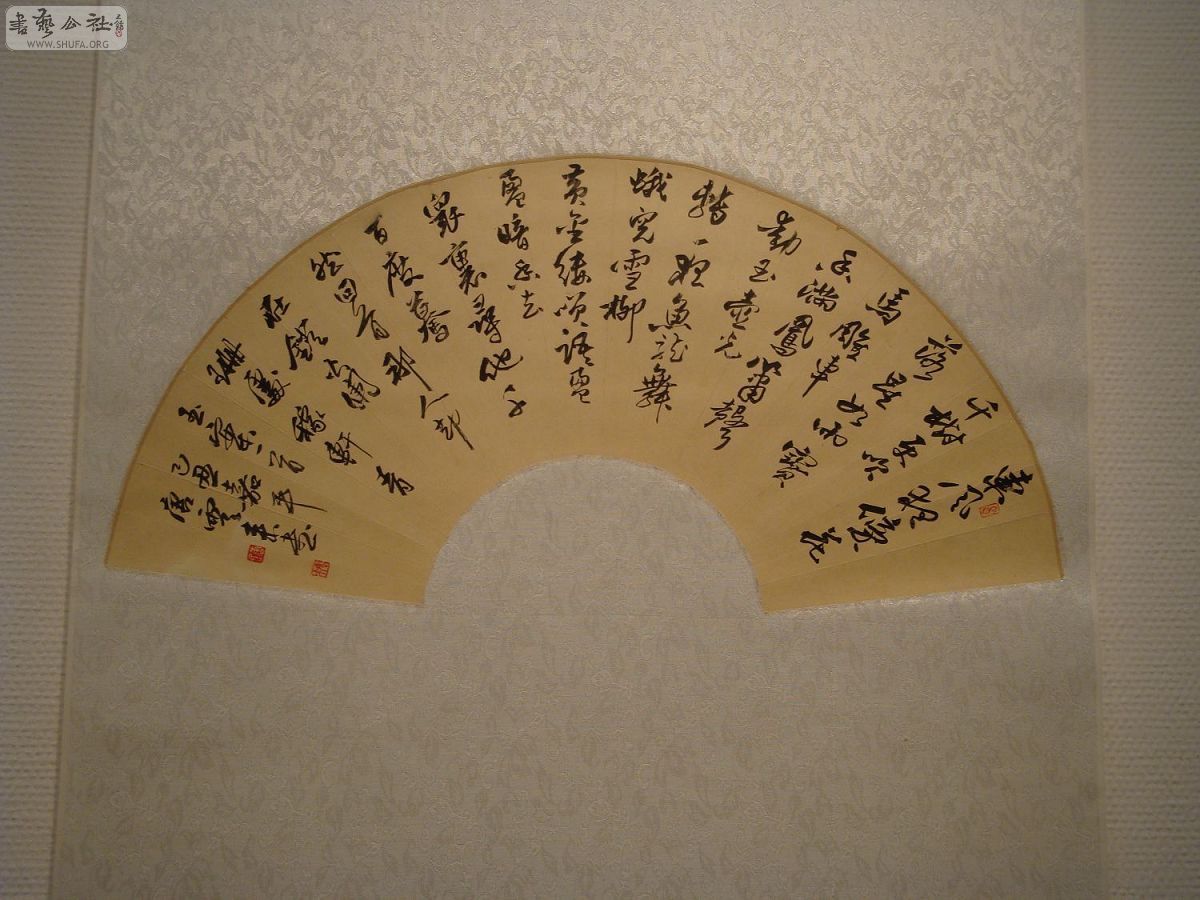 書藝公社
WWW.SHUFA.ORG
東風夜放花
千樹更吹
落星如雨寶
馬雕車
香滿鳳簫聲
動玉壺光
轉一夜魚龍舞
蛾兒雪柳
黃金縷笑語盈
盈暗香去
眾裏尋他千
百度驀
然回首那人卻
在燈闌
珊處稼軒青
玉案一首
己丑嘉平
唐雲來書